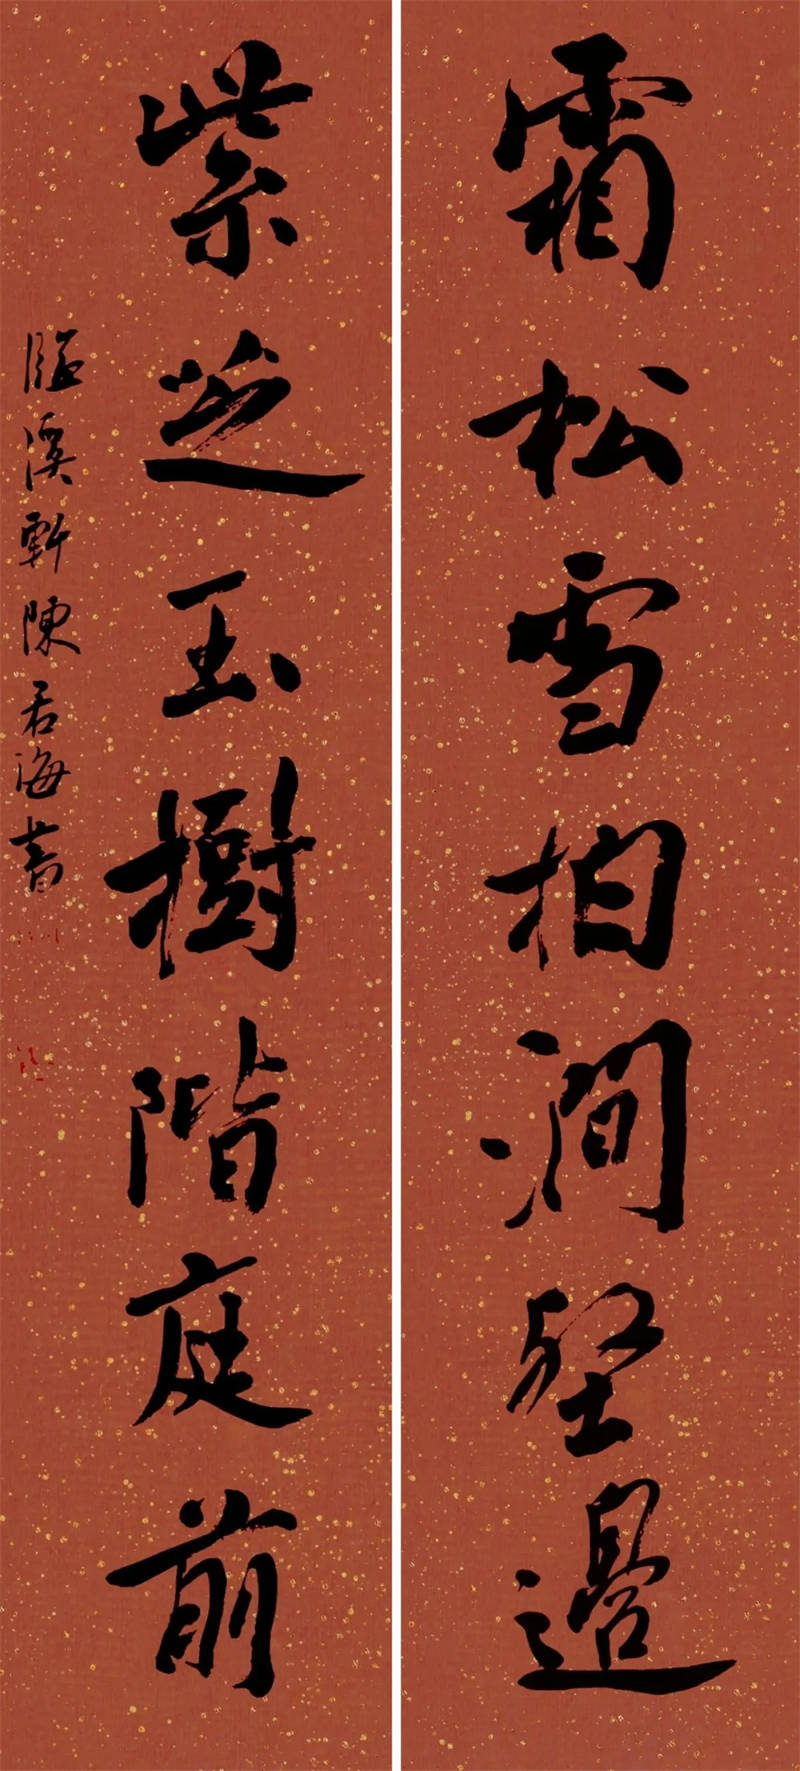 霜松雪柏澗壑邊
紫芝玉樹階庭前
臨溪軒陳君海書